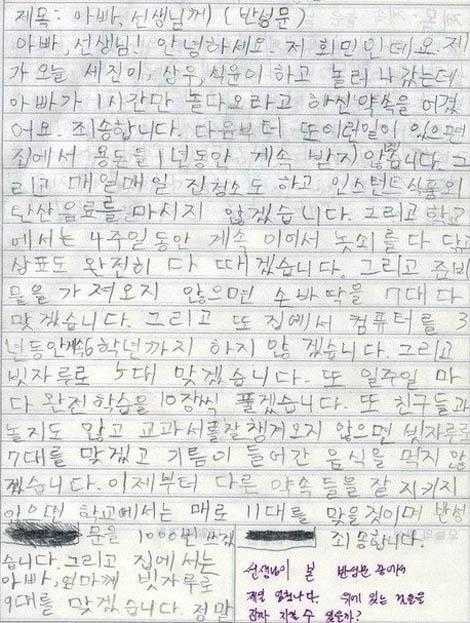 제목: 아빠, 선생님께 (반성문)
아빠, 선생님! 안녕하세요. 저 희민인데요. 제
가 오늘 세진이, 삼우, 석윤이하고 놀러 나갔는데
아빠가 1시간만 놀다오라고 하신약속을 어겼
어요. 죄송합니다. 다음부터 또이런일이 있으면
집에서 용돈을 1년동안 계속 받지 않겠습니다. 그
리고 매일매일 진청소도 하고 인스턴트식품의
탄산음료를 마시지 않겠습니다. 그리고 학교
에서는 4주일동안 계속 이어서 놋쇠를 다 닦
상표도 완전히 다 때겠습니다. 그리고 준비
물을 가져오지 않으면 손바딱을 7대 다
맞겠습니다. 그리고 또 집에서 컴퓨터를 3
년동안계속6학년까지 하지 않겠습니다. 그리고
빗자루로 5대 맞겠습니다. 또 일주일 마
다 완전학습을 10장씩 풀겠습니다. 또 친구들과
놀지도 않고 교과서를잘챙겨오지 않으면 빗자루로
7대를 맞겠고 기름이 들어간 음식을 먹지 않
겠습니다. 이제부터 다른 약속들을 잘 지키지
않으면 학교에서는 매로 11대를 맞을것이며 반성
문을 1000번 쓰겠
습니다. 그리고 집에서는
아빠, 엄마께 빗자루로
9대를 맞겠습니다. 정말
죄송합니다.
선생님이 본 반성문 중에서
제일 입니다. 위에 있는 것들을
지킬 수 있을까?